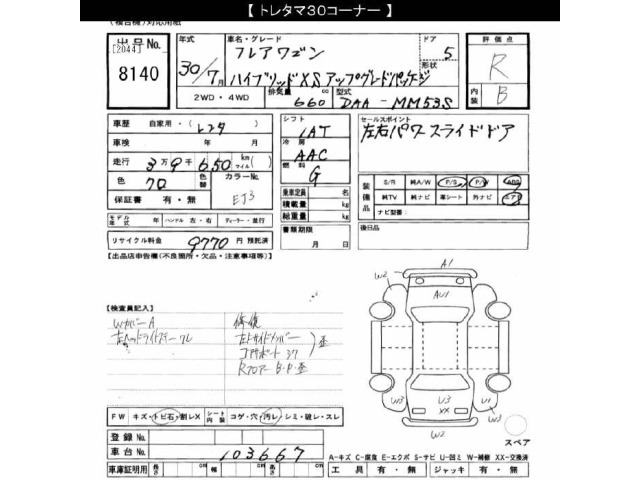 【 トレタマ３０コーナー 】
(複合機)対応用紙
出品No. [2044] 8140
年式 30/7月
車名・グレード フレアワゴン
ハイブリッドXS アップグレードパッケージ
ドア 5
形状
評価点 R
内装 B
2WD・4WD 排気量 660 cc 型式 DAA-MM53S
車歴 自家用・(レンタ)
車検 年 月
走行 3万9千650 km マイル
色 70 色替 カラーNo. EJ3
保証書 有・無
モデル年式 年 ハンドル 左・右 ディーラー・並行
リサイクル料金 9770 円 預託済
シフト IAT
冷房 AAC
燃料 G
乗車定員 名
積載量 kg
総重量 kg
書類期限
月 日
セールスポイント
左右パワースライドドア
装備品 S/R 純A/W P/S P/W ABS
純TV 純ナビ 革シート 外ナビ エアB
ナビ型番:
後日品
【出品店申告欄(不良箇所・欠品・注意事項等)】
【検査員記入】
Wカバー A
修復
コアサポート
Rフロア B・P・歪
歪
A1
W2
AU1
U3
XX
W3
U1
W3
W2
スペア
FW キズ・トビ石・割レX シート内装 コゲ・穴・汚レ・シミ・破レ・スレ
登録No.
車台No. 103667
車庫証明用 長さ cm 幅 cm 高さ cm
A-キズ C-腐食 E-エクボ S-サビ U-凹ミ W-補修 XX-交換済
工具 有・無 ジャッキ 有・無